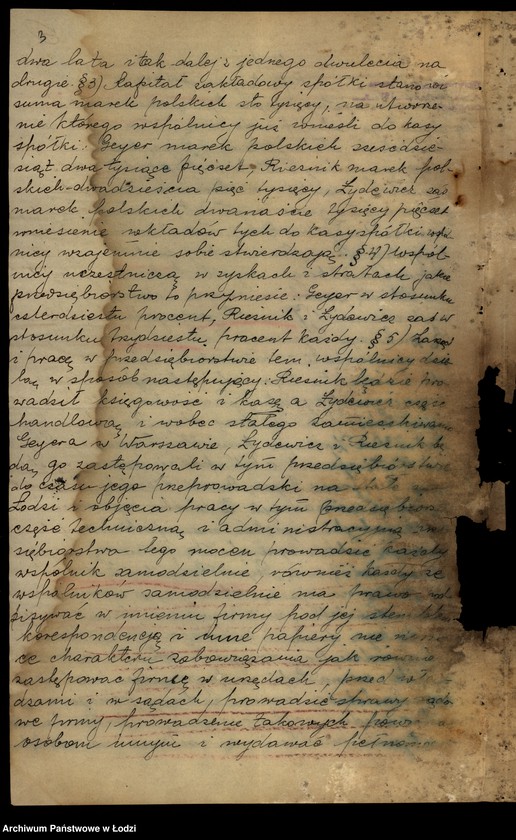 3
dwa lata i tak dalej z jednego dwulecia na
drugie. § 3) Kapitał zakładowy spółki stanowi
suma marek polskich sto tysięcy, na utworze-
nie którego wspólnicy już wnieśli do kasy
spółki: Geyer marek polskich sześćdzie-
siąt dwa tysiące pięćset, Riesnik marek pol-
skich dwadzieścia pięć tysięcy, Lydewicz zaś
marek polskich dwanaście tysięcy pięćset
wniesienie wkładów tych do kasy spółki wspól-
nicy wzajemnie sobie stwierdzają. § 4) Wspól-
nicy uczestniczą w zyskach i stratach jakie
przedsiębiorstwo to przyniesie: Geyer w stosunku
czterdziestu procent, Riesnik i Lydewicz zaś w
stosunku trzydziestu procent każdy. § 5) Zarząd
i pracę w przedsiębiorstwie tem wspólnicy dzie
lą w sposób następujący: Riesnik będzie pro-
wadził księgowość i kasę a Lydewicz część
handlową i wobec stałego zamieszkiwania
Geyera w Warszawie, Lydewicz i Riesnik bę
dą go zastępowali w tym przedsiębiorstwie
do czasu jego przeprowadzki na
Łodzi i objęcia pracy w tym przedsiębiorst
część techniczną i administracyjną
siębiorstwa tego mocen prowadzić każdy
wspólnik samodzielnie, również każdy ze
wspólników samodzielnie ma prawo pod
pizywać w imieniu firmy pod jej stemplem
korespondencję i inne papiery nie
ce charakteru zobowiązania jak również
zastępować firmę w urzędach, przed wła-
dzami i w sądach, prowadzić sprawy sądo
we firmy, prowadzenie takowych
osobom innym i wydawać
Archiwum Państwowe w Łodzi